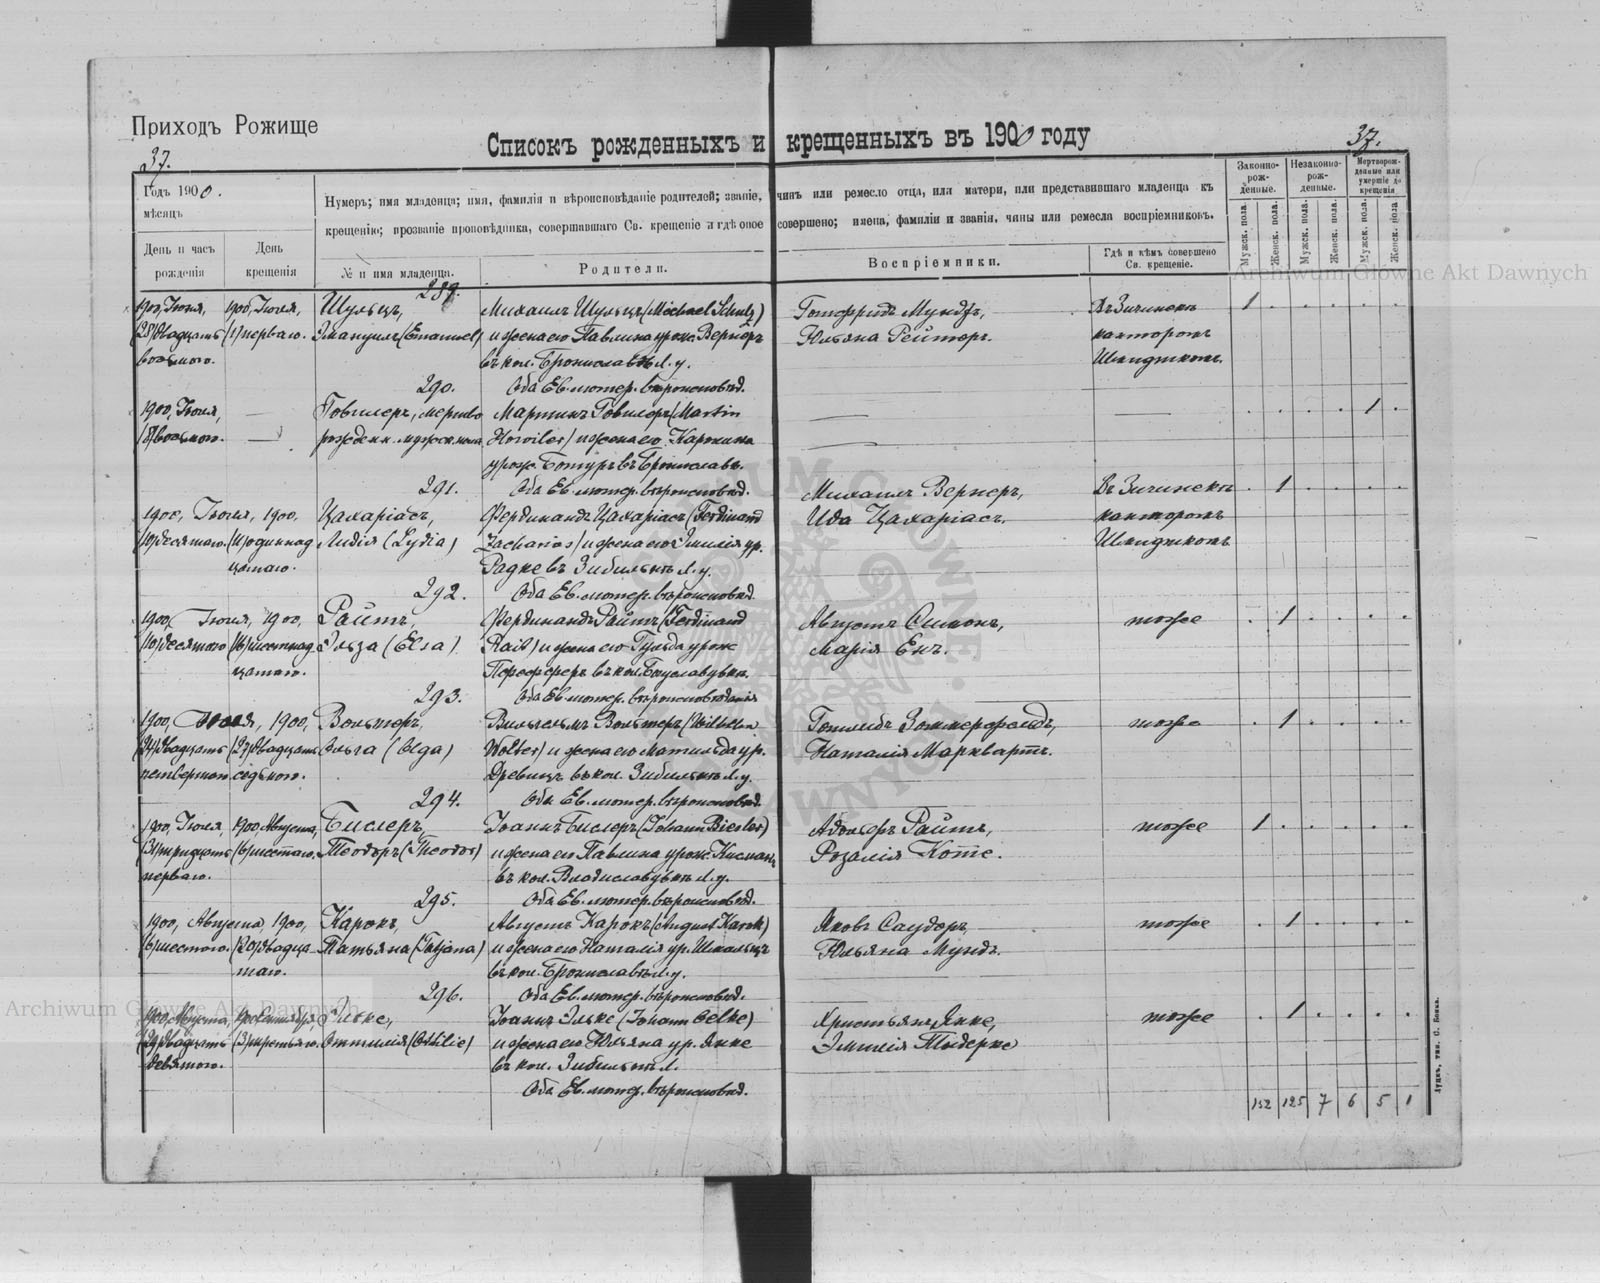 Приходъ Рожище
Списокъ рожденныхъ и крещенныхъ въ 1900 году
37.
37.
Годъ 1900.
мѣсяцъ
День и часъ рожденія
День крещенія
Нумеръ; имя младенца; имя, фамилія и вѣроисповѣданіе родителей; званіе, чинъ или ремесло отца, или матери, или представившаго младенца къ
крещенію; прозваніе проповѣдника, совершавшаго Св. крещеніе и гдѣ оное совершено; имена, фамиліи и званія, чины или ремесла воспріемниковъ.
№ и имя младенца.
Родители.
Воспріемники.
Гдѣ и кѣмъ совершено Св. крещеніе.
Законно-рож-денные.
Незаконно-рож-денные.
Мертворож-денные или умершіе до крещенія
Мужск. пола.
Женск. пола.
Мужск. пола.
Женск. пола.
Мужск. пола.
Женск. пола
289.
1900, Іюня, 1900, Іюля, Шульцъ, Михаилъ Шульцъ (Michael Schulz) Готфридъ Мундъ, Въ Зичинекъ 1
(28) двадцать (1) перваго. Эмануилъ (Emanuel) и жена его Павлина урож. Вернеръ Юльяна Рейтеръ. канторомъ
восьмого. въ кол. Брониславкѣ Л. у.
290. Оба Ев. лютер. вѣроисповѣд.
1900, Іюля, — Говилеръ, мертво Мартинъ Говилеръ (Martin — 1
(8) восьмого. — рожденн. мужск. пола Howiler) и жена его Каролина —
291. Оба Ев. лютер. вѣроисповѣд. Михаилъ Вернеръ, Въ Зичинекъ 1
1900, Іюля, 1900, Цахаріасъ, Фердинандъ Цахаріасъ (Ferdinand Ида Цахаріасъ. канторомъ
(10) десятаго. (11) одиннад Лидія (Lydia) Zacharias) и жена его Эмилія ур.
цатаго. Радке въ Л. у.
292. Оба Ев. лютер. вѣроисповѣд.
1900, Іюля, 1900, Райтъ, Фердинандъ Райтъ (Ferdinand Августъ Симонъ, тоже 1
(10) десятого (16) шестнад Эльза (Elsa) Rait) и жена его Гульда урож Марія Енъ.
цатаго. въ кол.
293. Оба Ев. лютер. вѣроисповѣданія
1900, Іюля, 1900, Вольтеръ, Вильгельмъ Вольтеръ (Wilhelm Готлибъ Зоммерфельдъ, тоже 1
(24) двадцать (27) двадцать Ольга (Olga) Wolter) и жена его Матильда ур. Наталія Марквартъ.
четвертаго седьмого. въ кол. Л. у.
294. Оба Ев. лютер. вѣроисповѣд.
1900, Іюля, 1900, Августа, Бислеръ, Іоаннъ Бислеръ (Johann Biesler) Адольфъ Райтъ, тоже 1
(31) тридцать (6) шестого. Теодоръ (Theodor) и жена его Павлина урож. Розалія Котте.
перваго. въ кол. Владиславувкѣ Л. у.
295. Оба Ев. лютер. вѣроисповѣд.
1900, Августа, 1900, Карокъ, Августъ Карокъ (August Karok) Яковъ тоже 1
(6) шестого. (20) двадца Татьяна (Tatjana) и жена его Наталія ур. Юльяна Мундъ.
таго. въ кол. Брониславкѣ Л. у.
296. Оба Ев. лютер. вѣроисповѣд.
1900, Августа, 1900, Сентября Эльке, Іоаннъ Эльке (Johann Oelke) Христьянъ Янке, тоже 1
(29) двадцать (3) третьяго. Оттилія (Ottilie) и жена его Юльяна ур. Янке Эмилія
девятого. въ кол. Л.
Оба Ев. лютер. вѣроисповѣд.
152 125 7 6 5 1
Луцкъ, тип. С. Бокка.
Archiwum Główne Akt Dawnych
Archiwum Główne Akt Dawnych